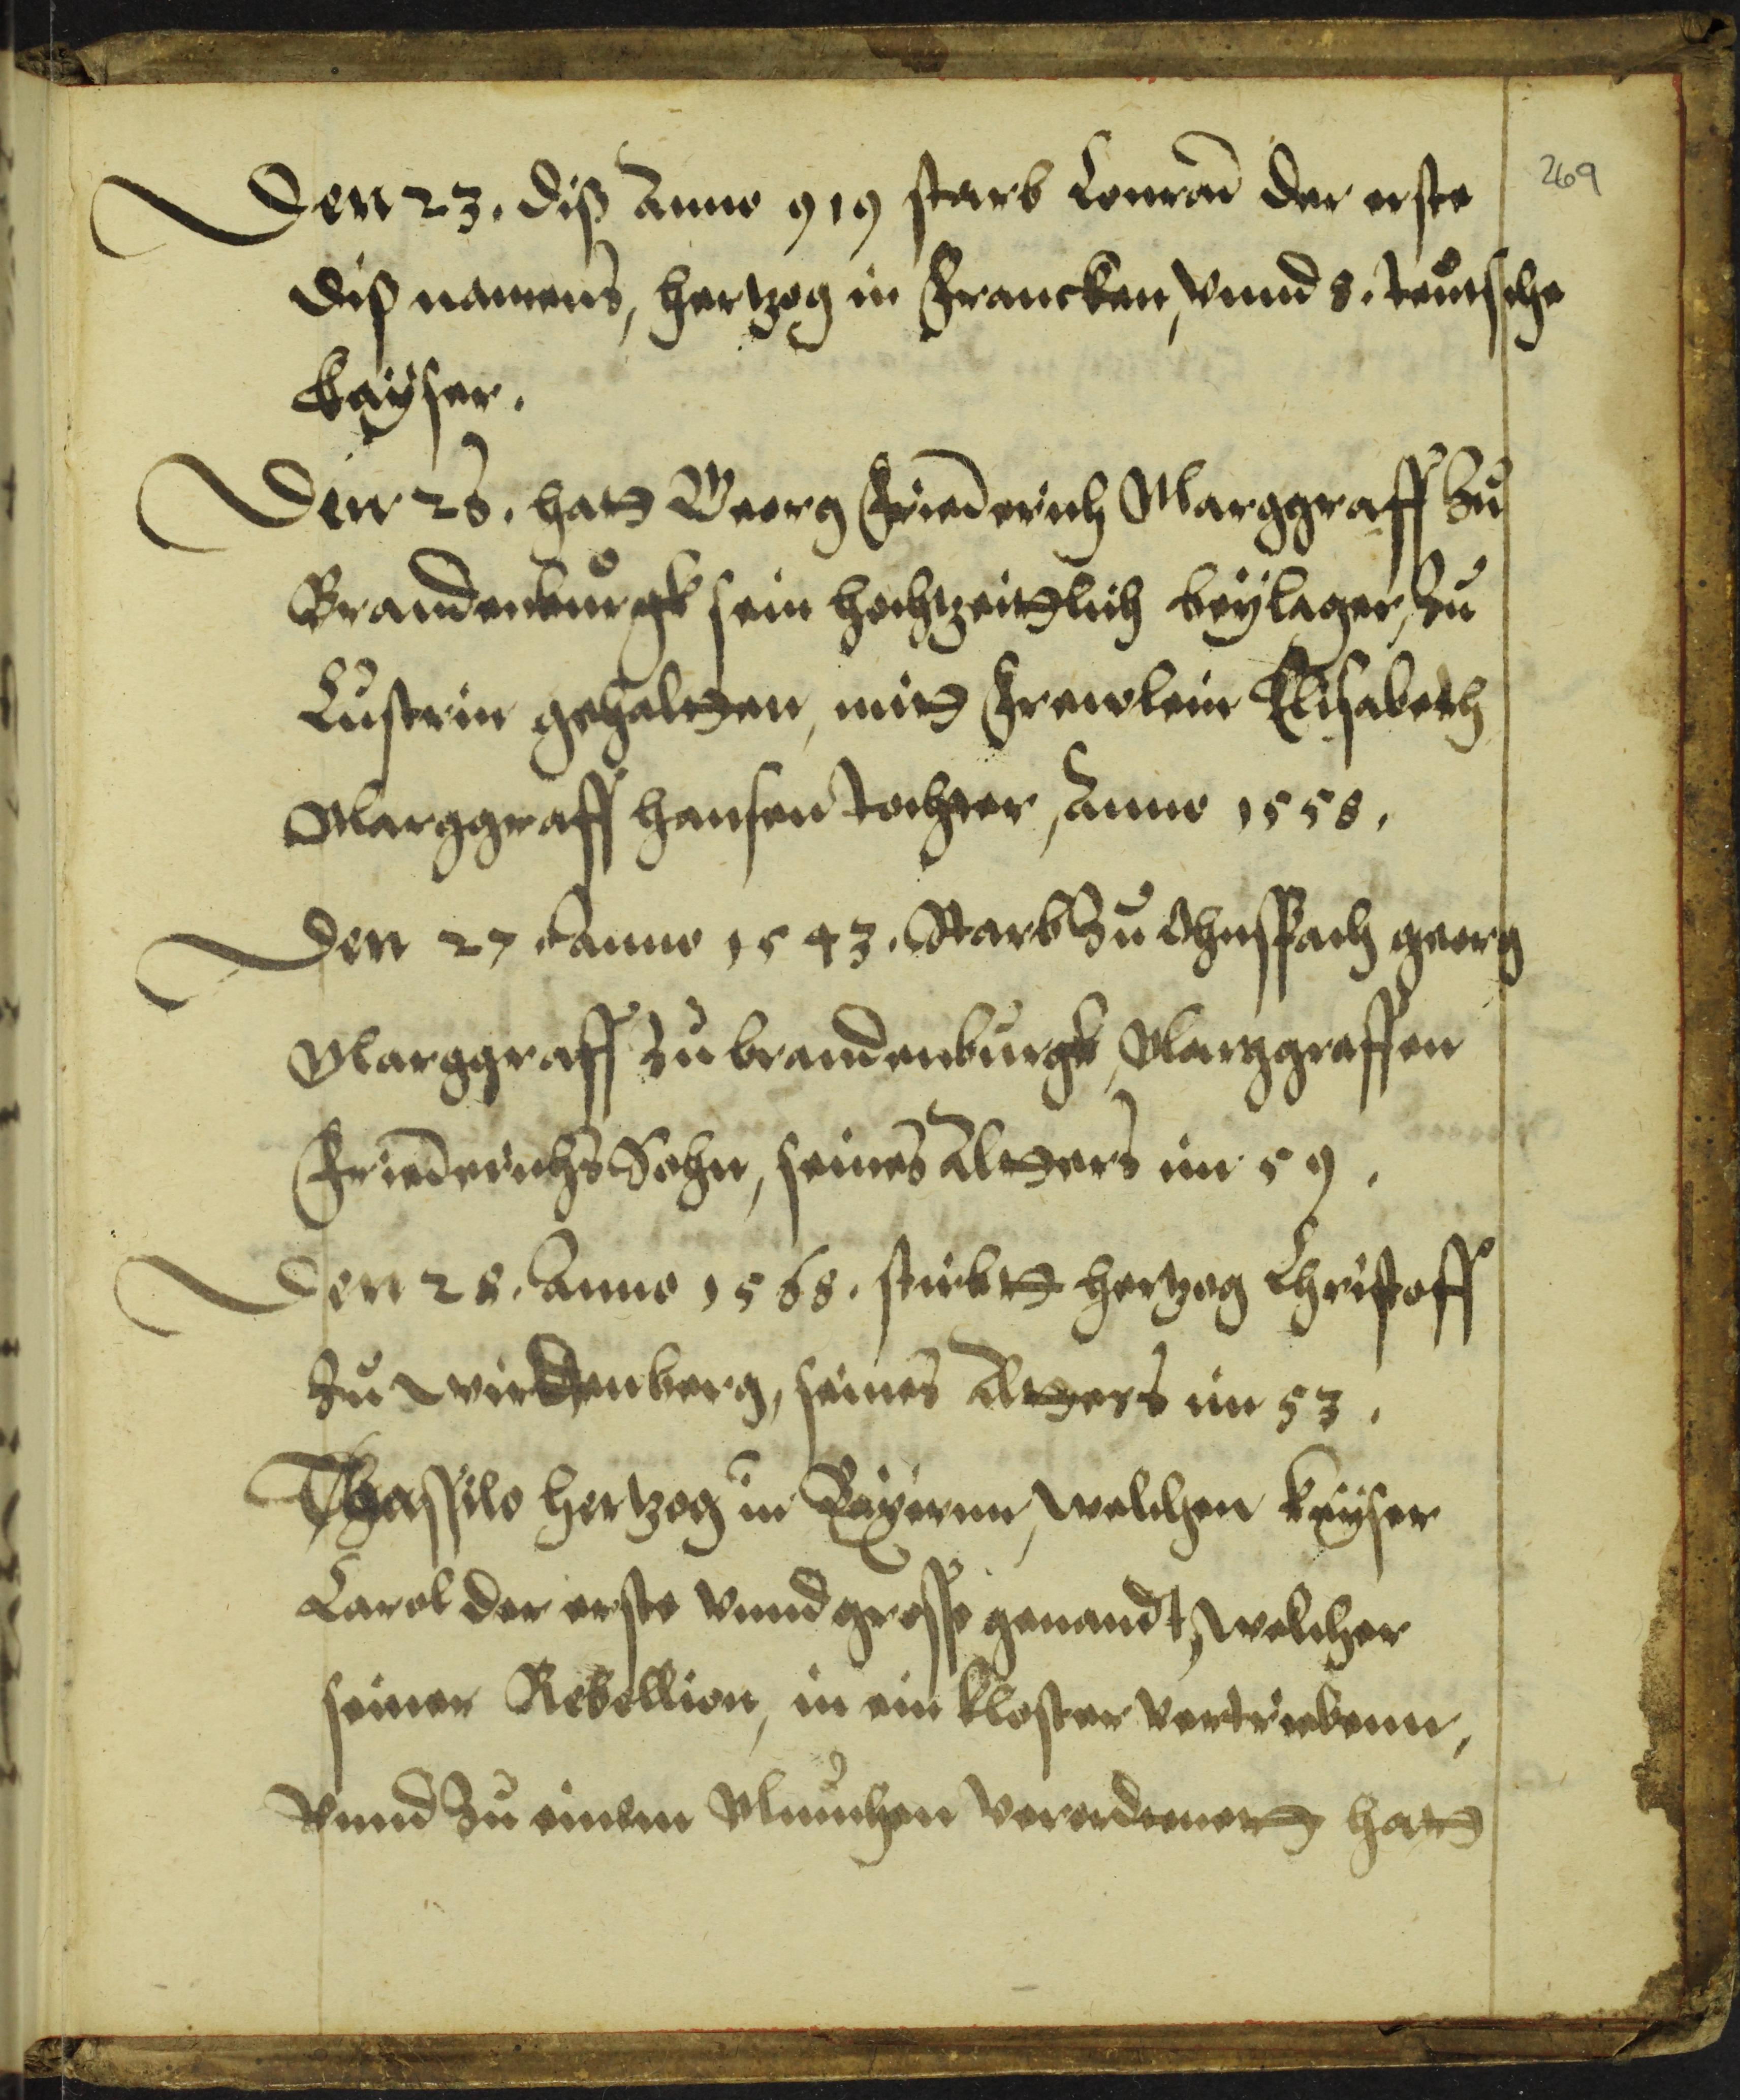 269
Den 23. diß Anno 919 starb Conrad der erste
diß namens, hertzog in Francken, vnnd 8. teutsche
kayser.
Den 26. hatt Georg Friederich Marggraff zu
Brandenburgk sein hochzeittlich beylager, zu
Custrin gehaltten, mitt Frewlein Elisabeth
Marggraff hansen tochter, Anno 1558.
Den 27. Anno 1543. Starb zu Ohnspach georg
Marggraff zu brandenburgk, Marggraffen
Friederichs Sohn, seines Altters im 59.
Den 28. Anno 1568. stirbtt hertzog Christoff
zu wirttenberg, seines Altters im 53.
Thassilo hertzog in Bayernn, welchen kayser
Carol der erste vnnd grosse genandt, welcher
seiner Rebellion, in ein kloster vertriebenn,
Vnnd zu einem Munchen verordtnett hatt